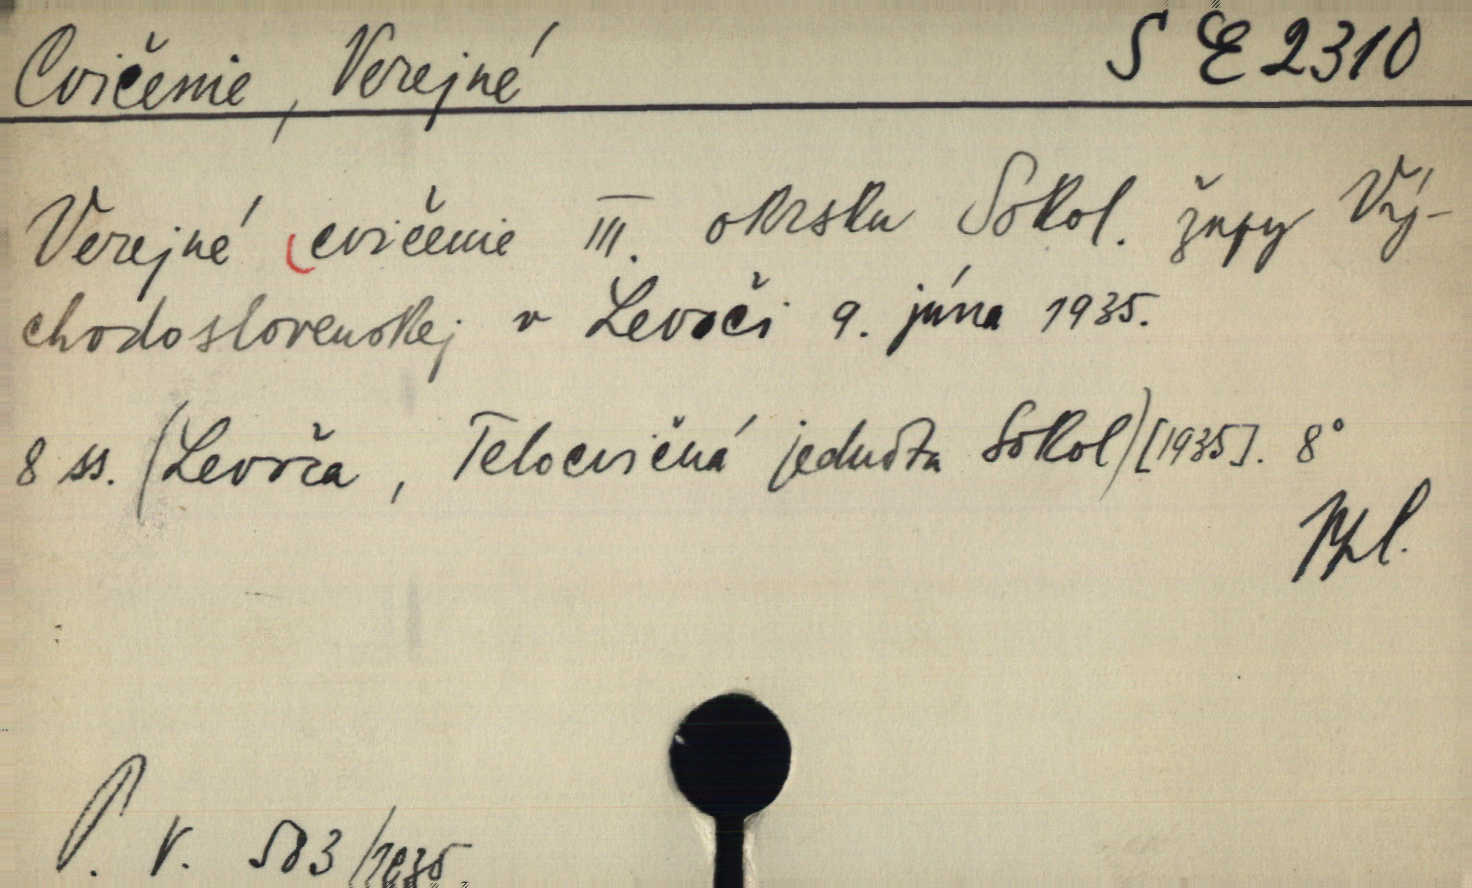 Cvičenie, Verejné
S E 2310
Verejné cvičenie III. okrsku Sokol. župy Vý-
chodoslovenskej v Levoči 9. júna 1935.
8 ss. (Levoča, Telocvičná jednota Sokol) [1935]. 8°
P. v. 583/1935.